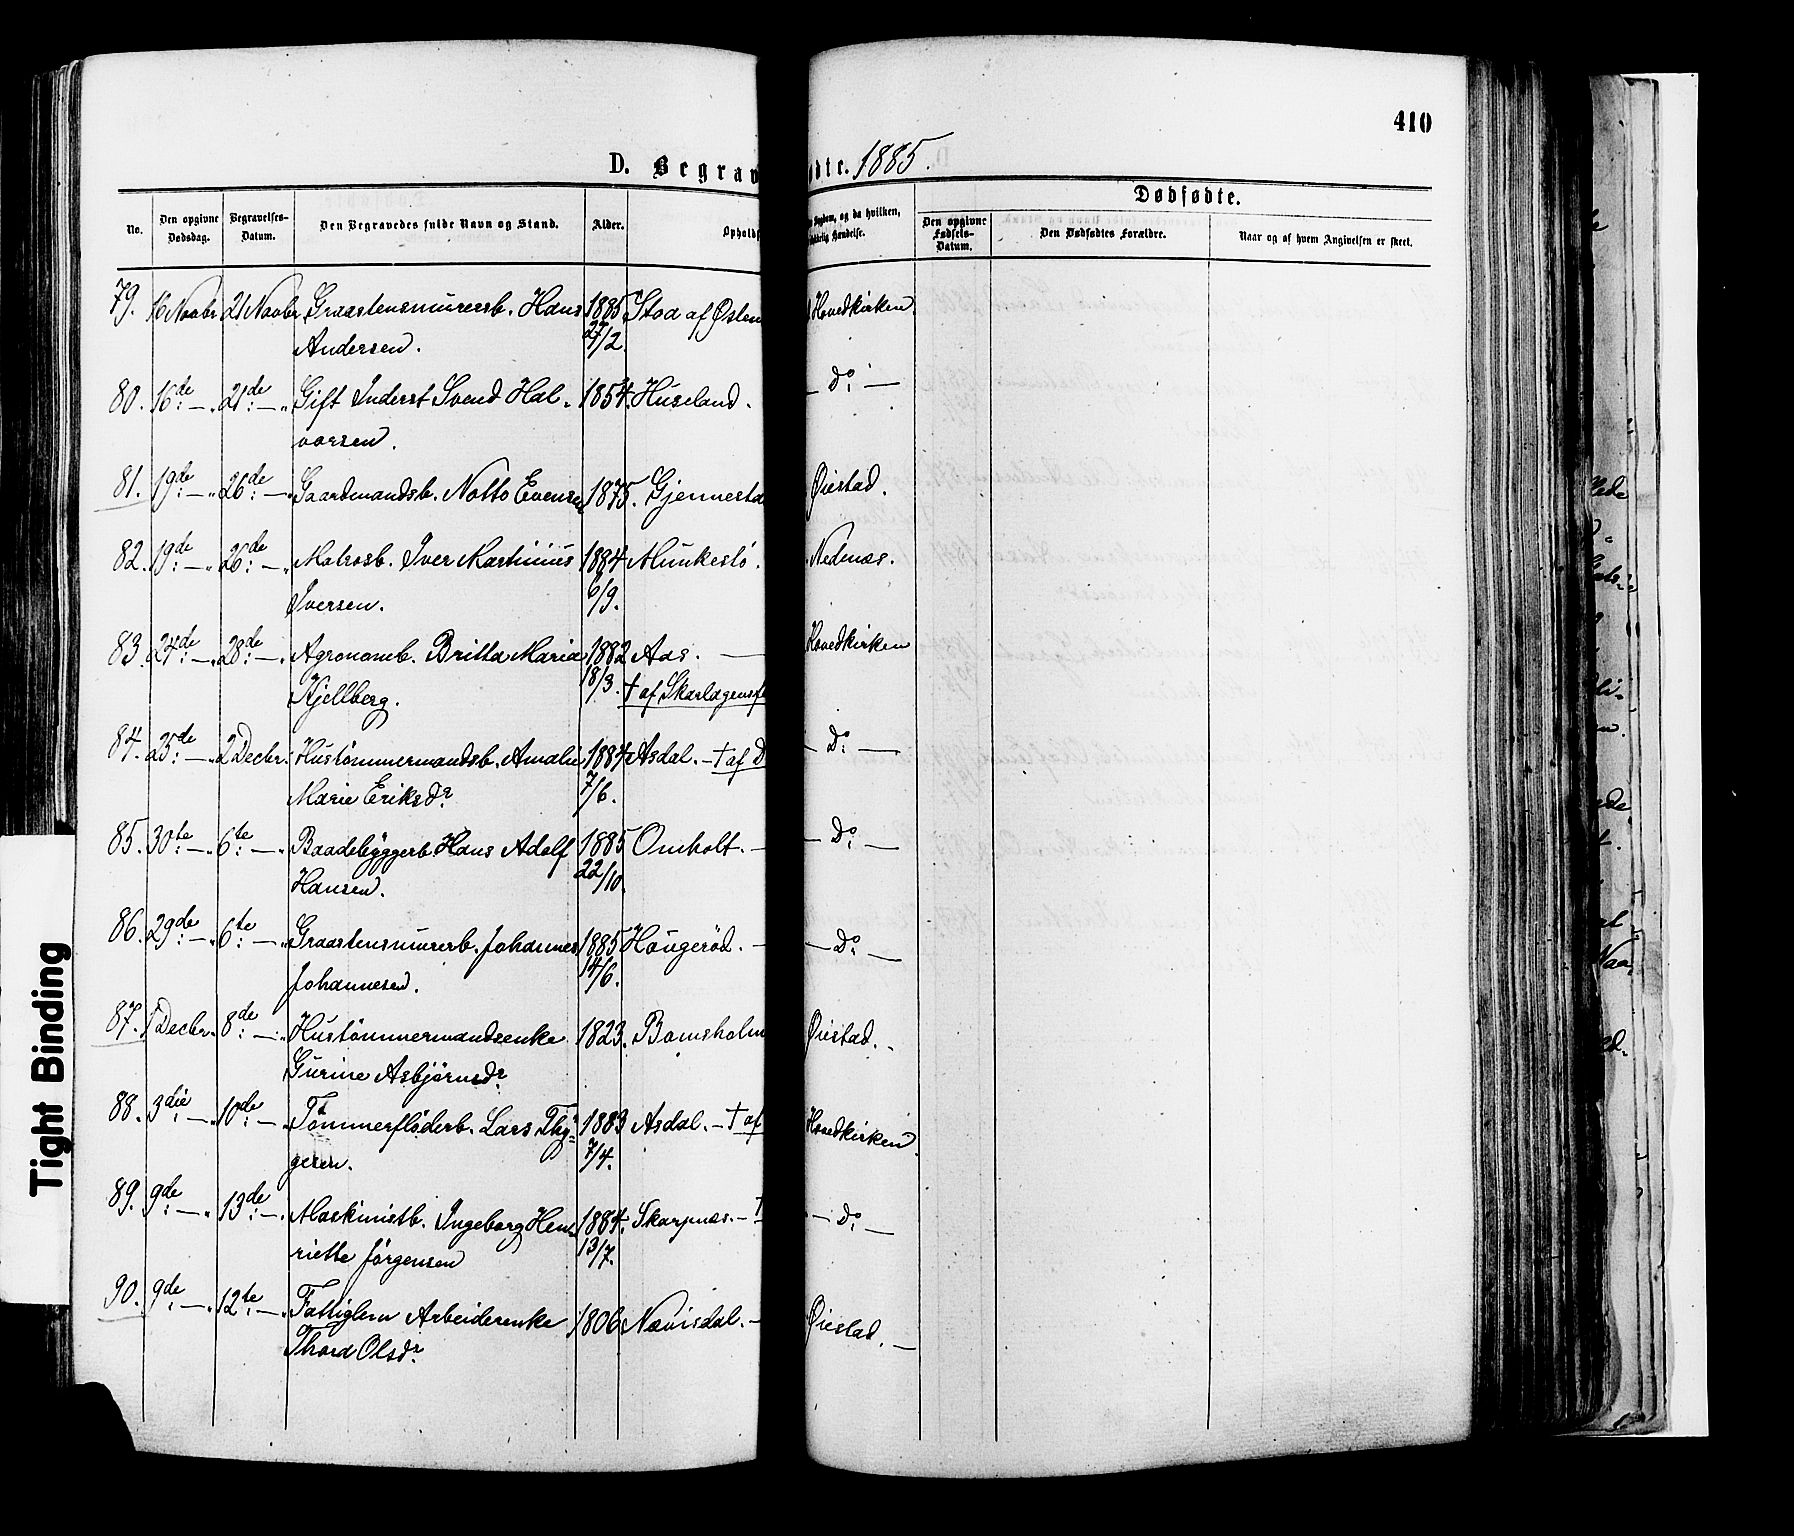 410
D. Begrav
dte. 1885.
No.
Den opgivne Dødsdag.
Begravelses-Datum.
Den Begravedes fulde Navn og Stand.
Alder.
Opholds
Sygdom, og da hvilken,
Hændelse.
Dødfødte.
Den opgivne Fødsels-Datum.
Den Dødfødtes Forældre.
Naar og af hvem Angivelsen er skeet.
79. 16 Novbr 21 Novbr Graastensmurersb. Hans 1885 Stoa af Østen Hovedkirken.
Andersen. 27/2.
80. 16de — 21de — Gift Inderst Svend Hal- 1854. Huseland. — Do —
vorsen.
81. 19de — 26de — Gaardmandsb. Notto Evensen 1875. Gjennesta Øiestad.
82. 19de — 26de — Matrosb. Iver Martinius 1884 Munkestö. Nednæs.
Iversen. 6/9.
83. 24de — 28de — Agronomb. Britta Maria 1882 Aas. — Hovedkirken
Kjellberg. 18/3. † af Skarlagensf
84. 25de — 2 Decbr. Hustømmermandsb. Amalie 1884 Asdal. — † af D — Do —
Marie Eriksdr 7/6.
85. 30te — 6te — Baadebyggerb. Hans Adolf 1885 Omholt. — — Do —
Hansen. 22/10.
86. 29de — 6te — Graastensmurerb. Johannes 1885 Hougeröd. — — Do —
Johannesen. 14/6.
87. 1 Decbr. 8de — Hustömmermandsenke 1823. Bomsholm Øiestad. -
Gurine Asbjörnsdr
88. 3die — 10de — Tømmerfløderb. Lars Thy- 1883 Asdal. — † af Hovedkirken.
gesen. 7/4.
89. 9de — 13de — Maskinistb. Ingeborg Hen- 1884. Skarpnæs. — † — Do —
riette Jörgensen 13/7.
90. 9de — 12te — Fattiglem Arbeiderenke 1806 Nævisdal. — Øiestad. —
Thora Olsdr
Tight Binding